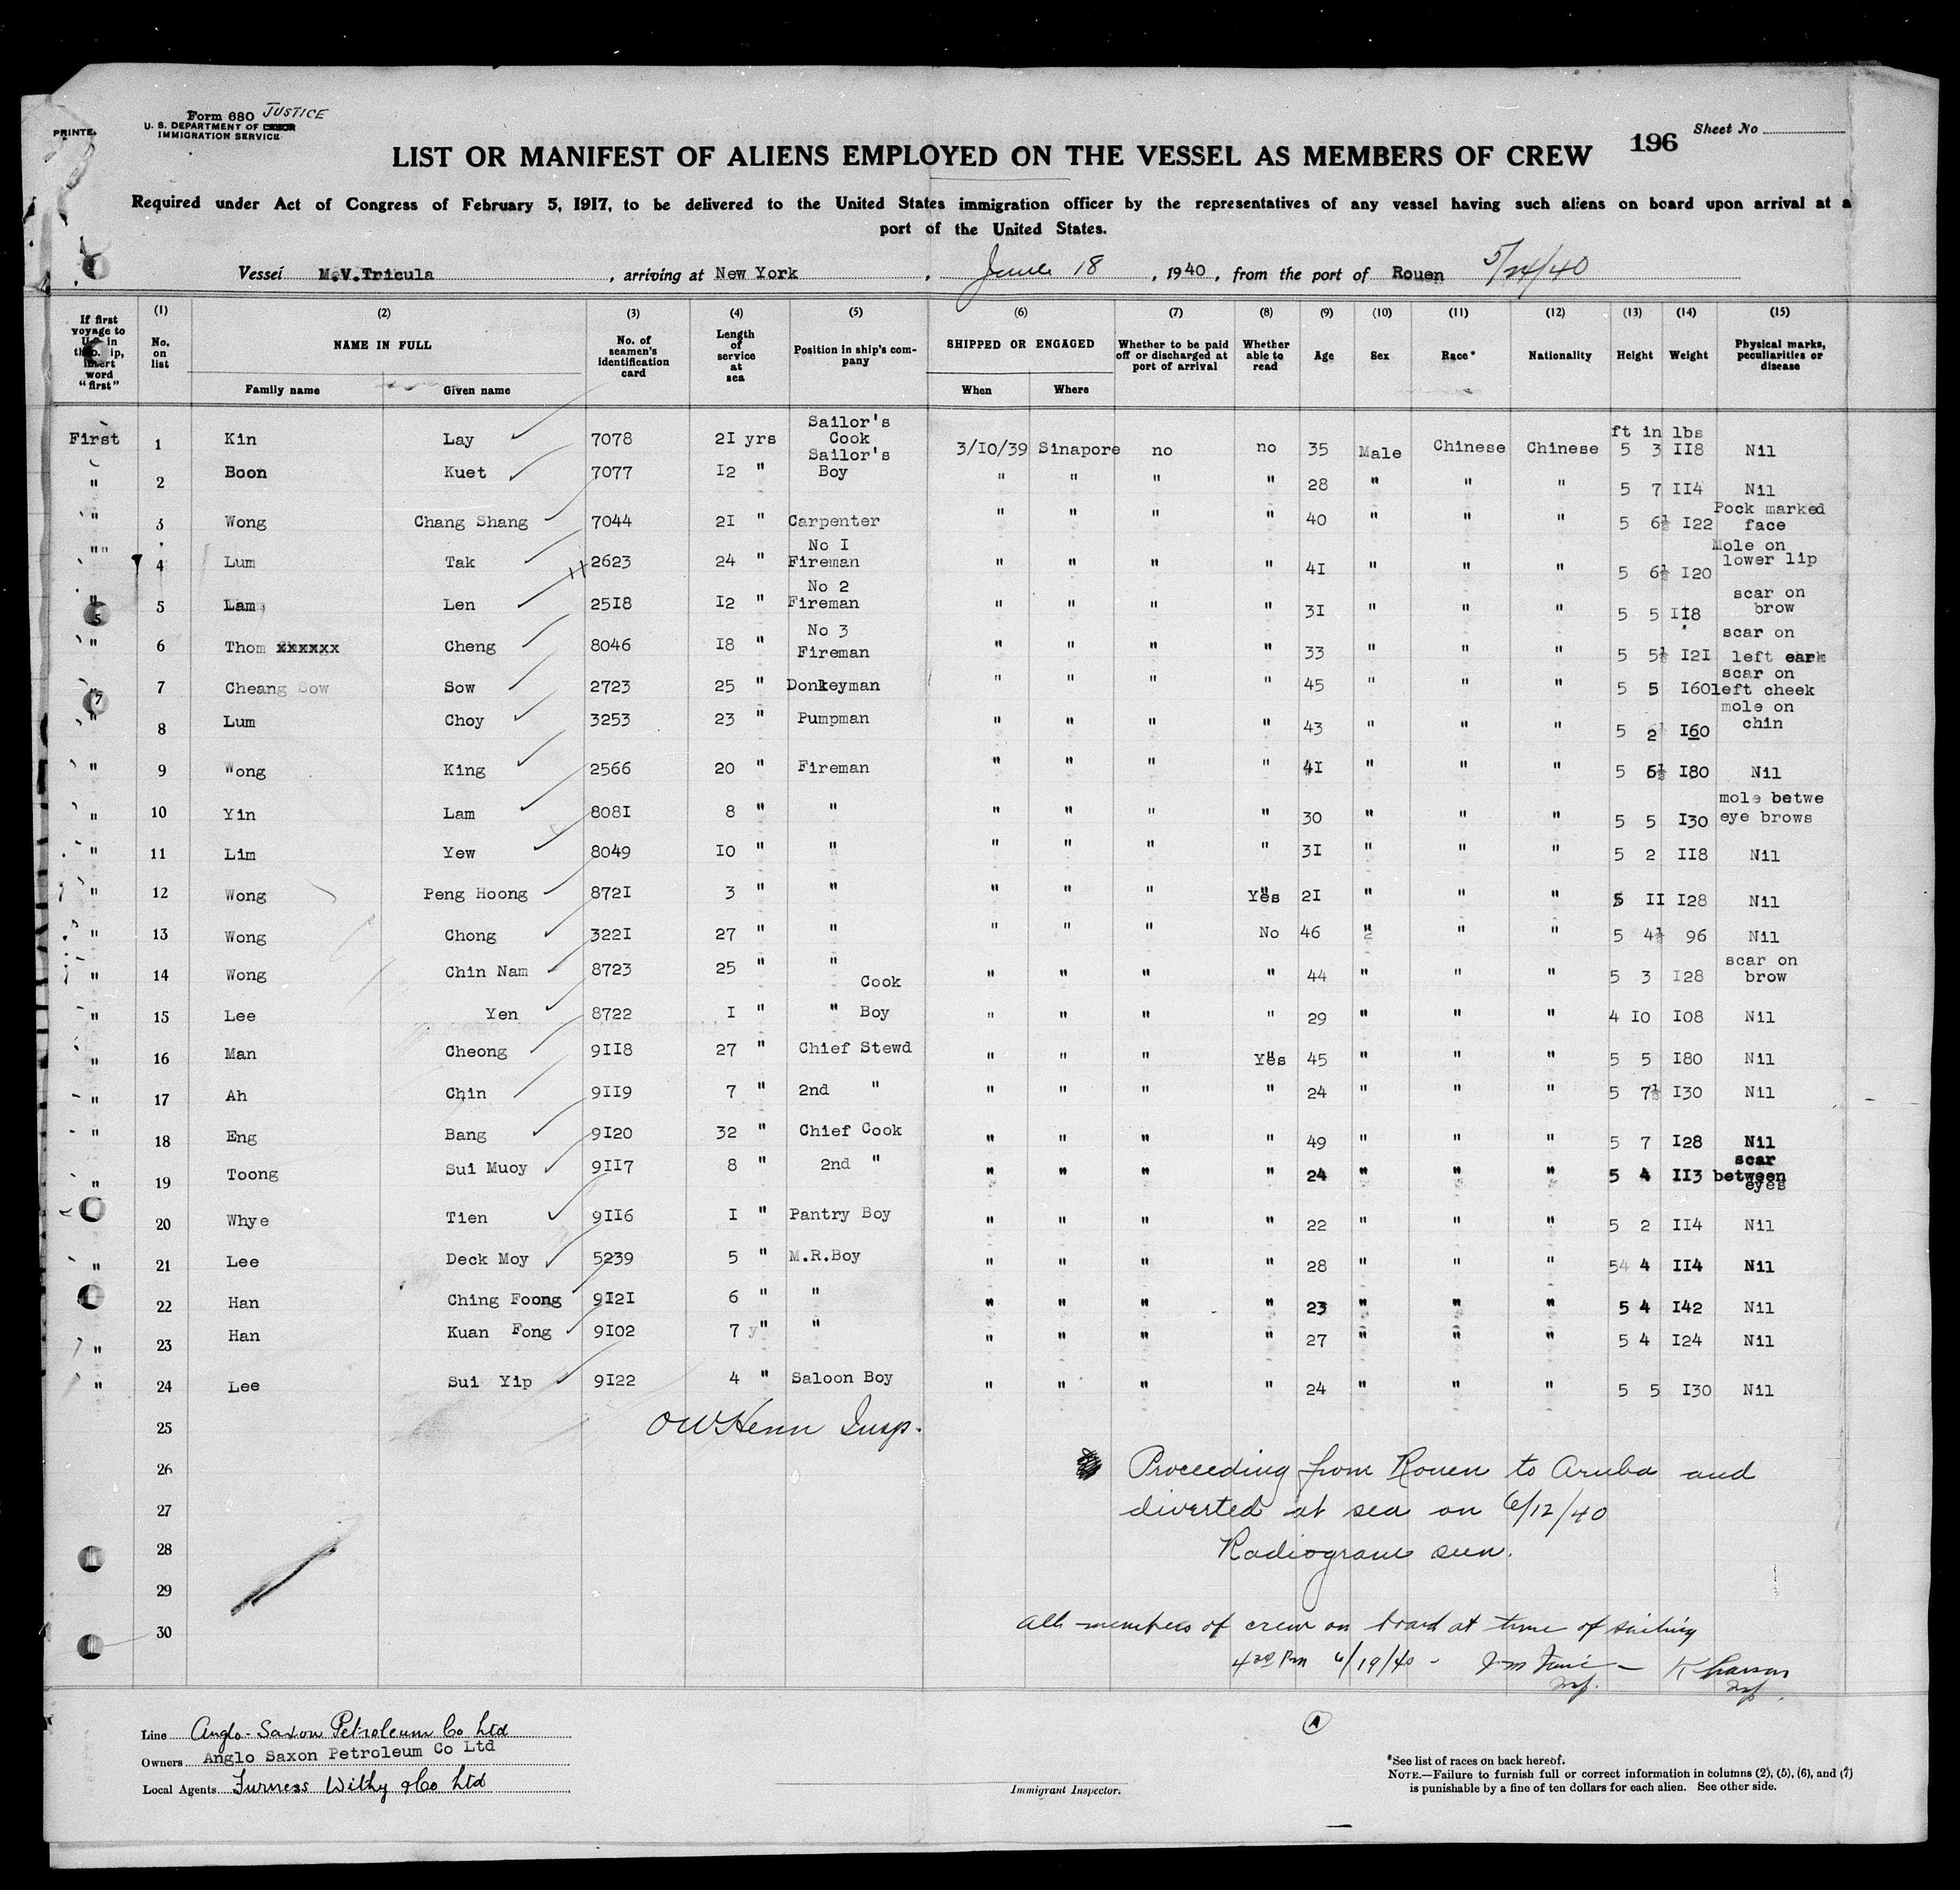 PRINTE
Form 680 JUSTICE
U. S. DEPARTMENT OF
IMMIGRATION SERVICE
Sheet No
196
LIST OR MANIFEST OF ALIENS EMPLOYED ON THE VESSEL AS MEMBERS OF CREW
Required under Act of Congress of February 5, 1917, to be delivered to the United States immigration officer by the representatives of any vessel having such aliens on board upon arrival at a
port of the United States.
Vessel M.V.Tricula , arriving at New York , June 18 , 1940 , from the port of Rouen 5/24/40
If first voyage to U.S. in ship, insert word "first"
(1) No. on list
(2) NAME IN FULL Family name Given name
(3) No. of seamen's identification card
(4) Length of service at sea
(5) Position in ship's company
(6) SHIPPED OR ENGAGED When Where
(7) Whether to be paid off or discharged at port of arrival
(8) Whether able to read
(9) Age
(10) Sex
(11) Race*
(12) Nationality
(13) Height
(14) Weight
(15) Physical marks, peculiarities or disease
ft in lbs
First 1 Kin Lay 7078 2I yrs Sailor's Cook 3/10/39 Sinapore no no 35 Male Chinese Chinese 5 3 II8 Nil
" 2 Boon Kuet 7077 I2 " Sailor's Boy " " " " 28 " " " 5 7 II4 Nil
" 3 Wong Chang Shang 7044 2I " Carpenter " " " " 40 " " " 5 6½ I22 Pock marked face
" " 4 Lum Tak 2623 24 " No I Fireman " " " " 4I " " " 5 6½ I20 Mole on lower lip
" 5 Lam Len 25I8 I2 " No 2 Fireman " " " " 3I " " " 5 5 II8 scar on brow
" 6 Thom xxxxxx Cheng 8046 I8 " No 3 Fireman " " " " 33 " " " 5 5½ I2I scar on left ear
" 7 Cheang Sow Sow 2723 25 " Donkeyman " " " " 45 " " " 5 5 I60 scar on left cheek
" 8 Lum Choy 3253 23 " Pumpman " " " " 43 " " " 5 2 I60 mole on chin
" 9 Wong King 2566 20 " Fireman " " " " 4I " " " 5 6½ I80 Nil
" 10 Yin Lam 808I 8 " " " " " " 30 " " " 5 5 I30 mole betwe eye brows
" 11 Lim Yew 8049 I0 " " " " " " 3I " " " 5 2 II8 Nil
" 12 Wong Peng Hoong 872I 3 " " " " " Yes 2I " " " 5 II I28 Nil
" 13 Wong Chong 322I 27 " " " " " No 46 " " " 5 4½ 96 Nil
" 14 Wong Chin Nam 8723 25 " " Cook " " " " 44 " " " 5 3 I28 scar on brow
" 15 Lee Yen 8722 I " " Boy " " " " 29 " " " 4 I0 I08 Nil
" 16 Man Cheong 9II8 27 " Chief Stewd " " " Yes 45 " " " 5 5 I80 Nil
" 17 Ah Chin 9II9 7 " 2nd " " " " " 24 " " " 5 7½ I30 Nil
" 18 Eng Bang 9I20 32 " Chief Cook " " " " 49 " " " 5 7 I28 Nil
" 19 Toong Sui Muoy 9II7 8 " 2nd " " " " " 24 " " " 5 4 II3 scar between eyes
20 Whye Tien 9II6 I " Pantry Boy " " " " 22 " " " 5 2 II4 Nil
" 21 Lee Deck Moy 5239 5 " M.R.Boy " " " " 28 " " " 5 4 II4 Nil
22 Han Ching Foong 9I2I 6 " " " " " " 23 " " " 5 4 I42 Nil
" 23 Han Kuan Fong 9I02 7 " " " " " " 27 " " " 5 4 I24 Nil
" 24 Lee Sui Yip 9I22 4 " Saloon Boy " " " " 24 " " " 5 5 I30 Nil
25 OW Henn Insp.
26 Proceeding from Rouen to Aruba and
27 diverted at sea on 6/12/40
28 Radiogram seen.
29
30 All members of crew on board at time of sailing
4 20 Pm 6/19/40 -
Insp. Insp.
Line Anglo-Saxon Petroleum Co Ltd
Owners Anglo Saxon Petroleum Co Ltd
Local Agents Furness Withy & Co Ltd
A
Immigrant Inspector.
*See list of races on back hereof.
NOTE.—Failure to furnish full or correct information in columns (2), (5), (6), and (7)
is punishable by a fine of ten dollars for each alien. See other side.